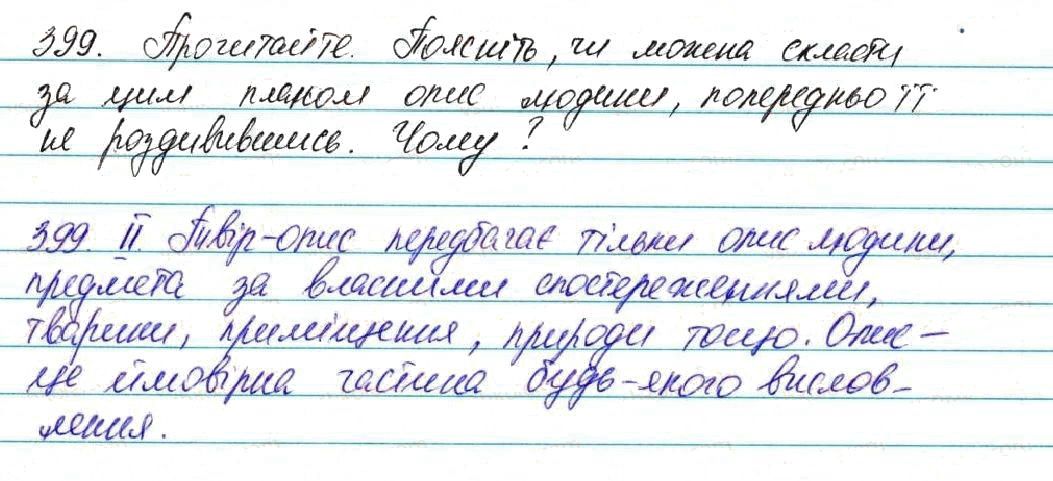 399. Прочитайте. Поясніть, чи можна скласти
за цим планом опис людини, попередньо її
не роздивившись. Чому?
399. II. Твір-опис передбачає тільки опис людини,
предмета за власними спостереженнями,
тварини, приміщення, природи тощо. Опис –
це ймовірна частина будь-якого вислов-
лення.